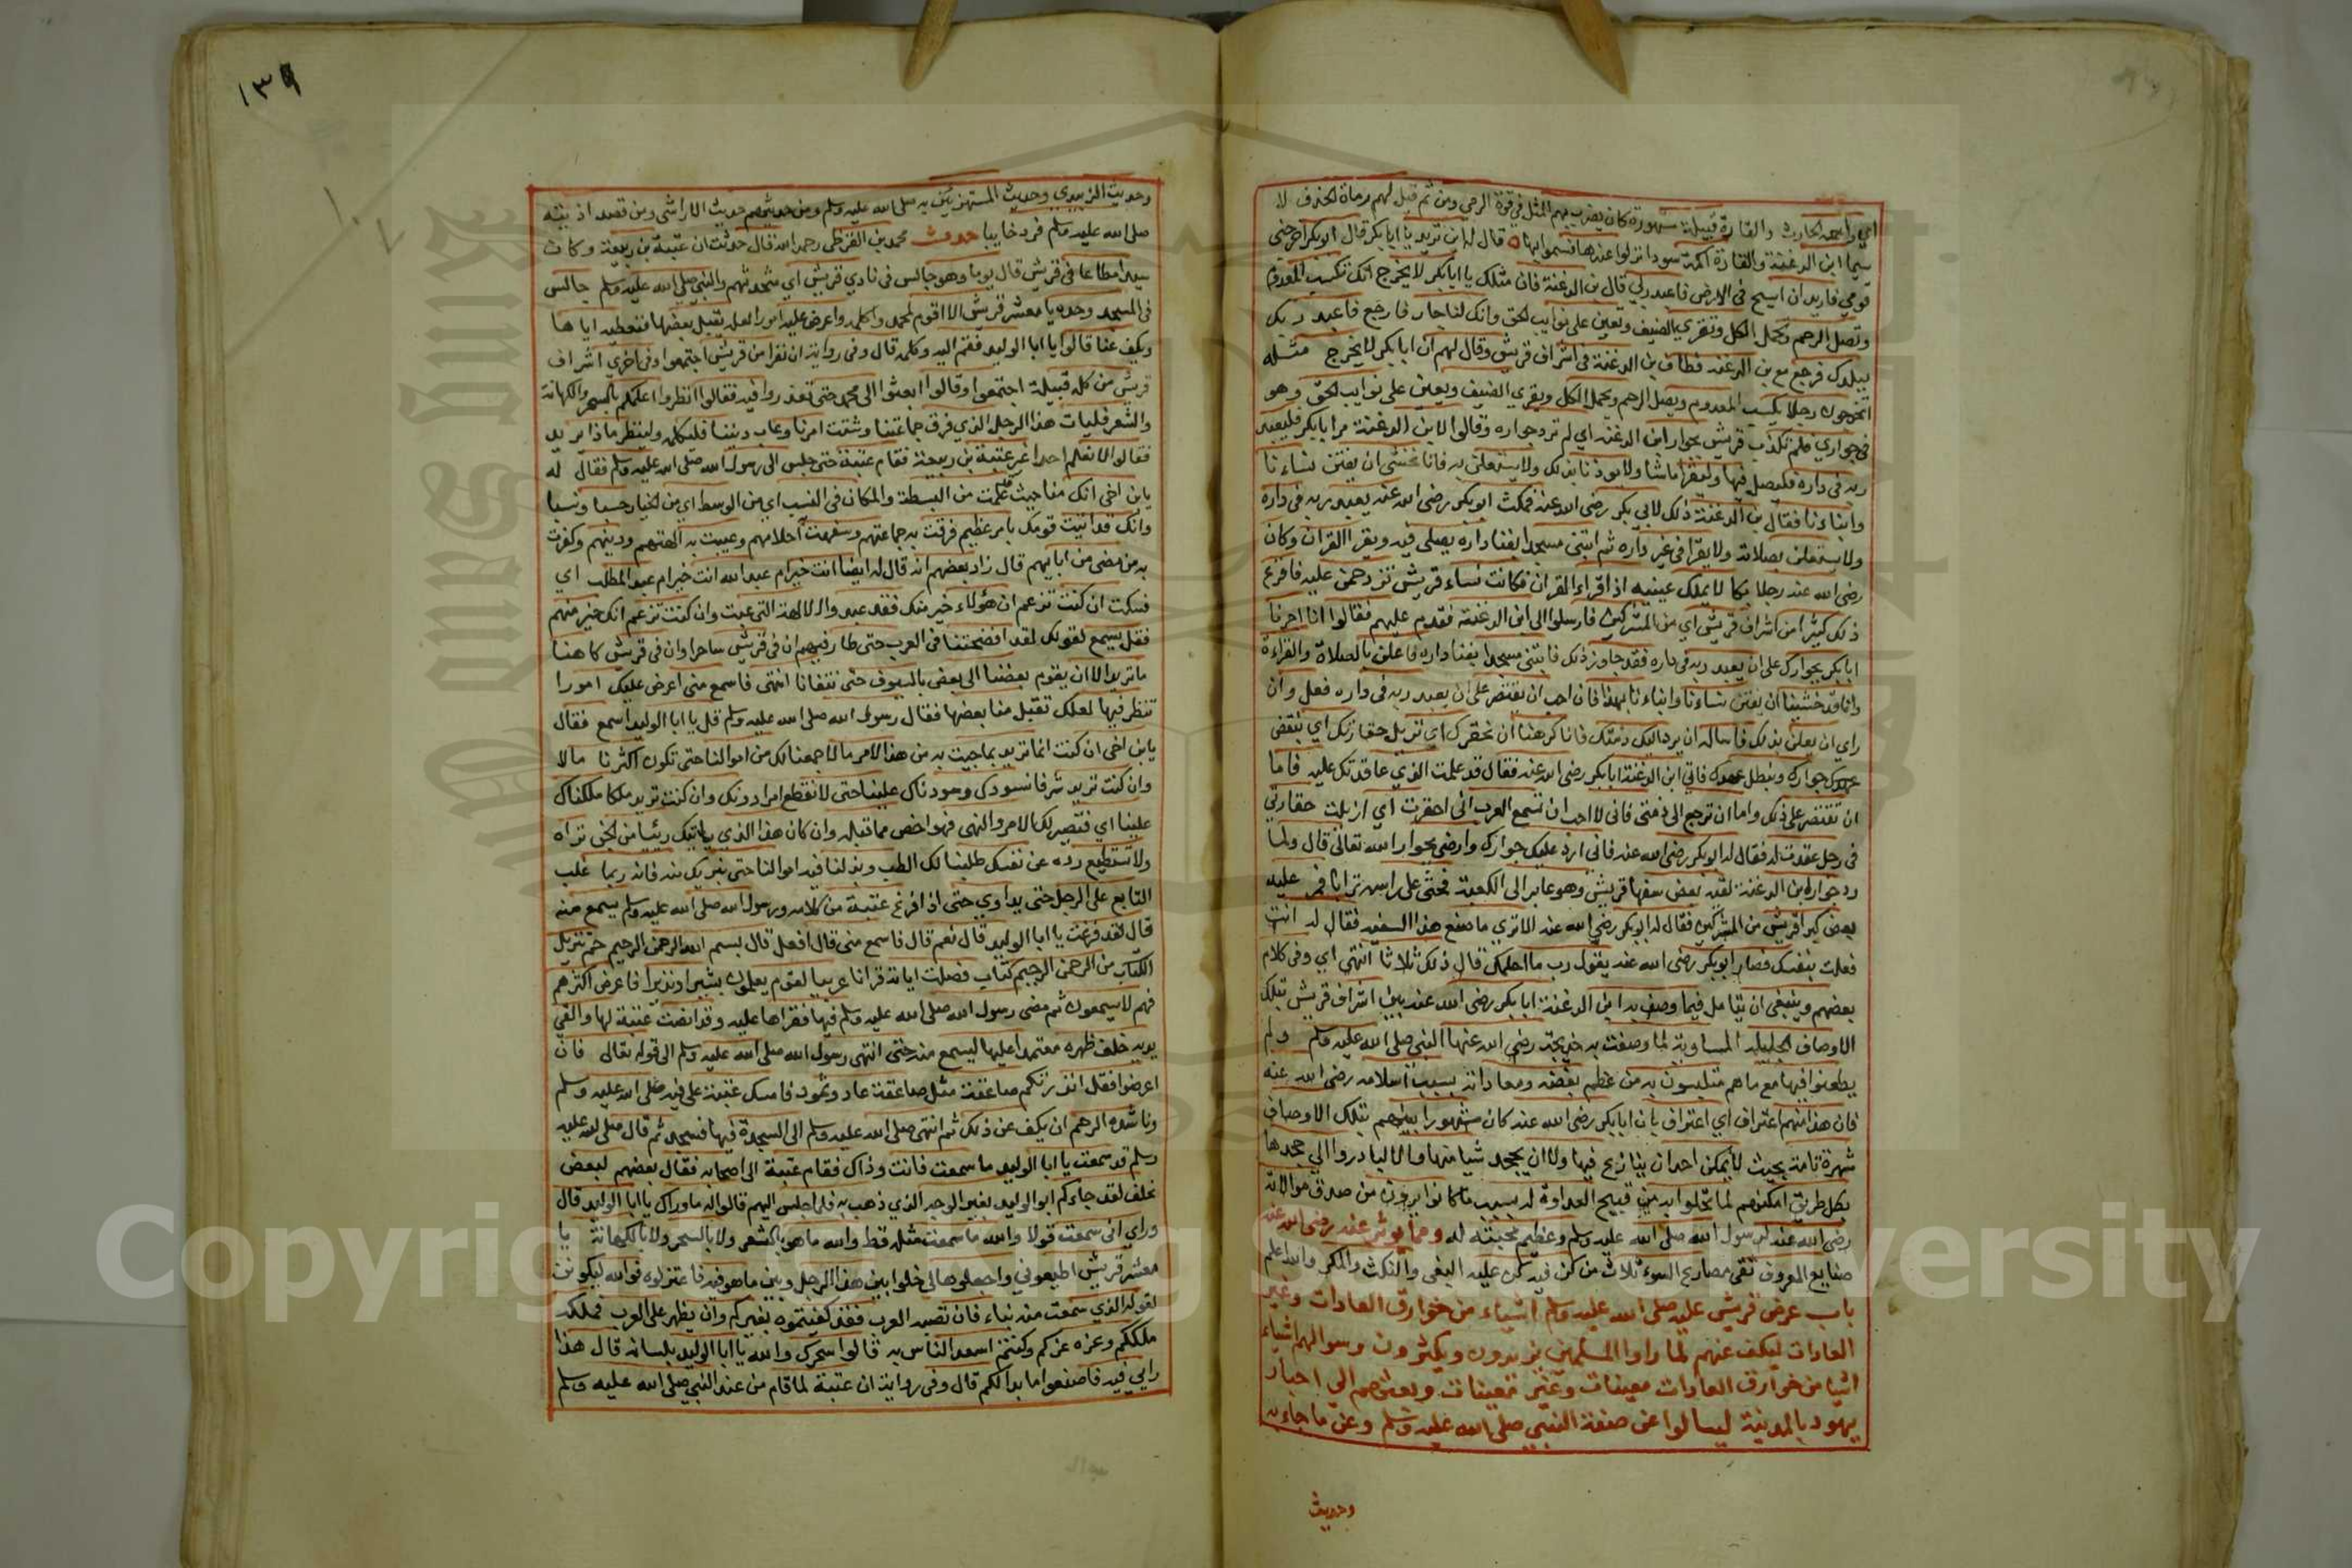 اي رابعه الحارث والقارة قبيلة مشهورة كان يضرب بهم المثل في قوة الرمي ومن ثم قيل لهم رماة الحدق لا
سيما ابن الدغنة والقارة اكمة سودا نزلوا عندها فسموا بها قال له اين تريد يا ابا بكر قال ابو بكر اخرجني
قومي فاريد ان اسيح في الارض فاعبد ربي قال بن الدغنة فان مثلك يا ابا بكر لا يخرج انك تكسب المعدوم
وتصل الرحم وتحمل الكل وتقري الضيف وتعين على نوايب الحق وانا لك جار فارجع فاعبد ربك
ببلدك فرجع مع بن الدغنه فطاف بن الدغنة في اشراف قريش وقال لهم ان ابا بكر لا يخرج مثله
اتخرجون رجلا يكسب المعدوم ويصل الرحم ويحمل الكل ويقري الضيف ويعين على نوايب الحق وهو
في جواري فلم تكذب قريش بجوار ابن الدغنه اي لم ترد جواره وقالوا لابن الدغنة مر ابا بكر فليعبد
ربه في داره فليصل فيها وليقرا ما شا ولا يوذنا بذلك ولا يستعلن به فانا نخشى ان يفتن نساءنا
وابناءنا فقال بن الدغنة ذلك لابي بكر رضي الله عنه فمكث ابو بكر رضي الله عنه يعبد ربه في داره
ولا يستعلن بصلاته ولا يقرا في غير داره ثم ابتنى مسجدا بفنا داره يصلي فيه ويقرا القران وكان
رضي الله عنه رجلا بكا لا يملك عينيه اذا قراء القران فكانت نساء قريش تزدحمن عليه فافزع
ذلك كثيرا من اشراف قريش اي من المشركين فارسلوا الى ابن الدغنة فقدم عليهم فقالوا انا اجرنا
ابا بكر بجوارك على ان يعبد ربه في داره فقد جاوز ذلك فابتنى مسجدا بفنا داره فاعلن بالصلاة والقراءة
وانا قد خشينا ان يفتن نساءنا وابناءنا بهذا فان احب ان يقتصر على ان يعبد ربه في داره فعل وان
راي ان يعلن بذلك فاساله ان يرد اليك ذمتك فانا كرهنا ان نخفرك اي نزيل خفارتك اي ننقض
جوارك ونبطل عهدك فاتي ابن الدغنة ابا بكر رضي الله عنه فقال قد علمت الذي عاقدتك عليه فاما
ان تقتصر على ذلك واما ان ترجع الى ذمتي فاني لا احب ان تسمع العرب اني احقرت اي ازيلت حقارتي
في رجل عقدت له فقال له ابو بكر رضي الله عنه فاني ارد عليك جوارك وارضى بجوار الله تعالى قال ولما
رد جوار بن الدغنة لقيه بعض سفها قريش وهو عابر الى الكعبة فحثى على راسه ترابا فمر عليه
بعض كبرا قريش من المشركين فقال له ابو بكر رضي الله عنه الا ترى ما صنع هذا السفيه فقال له انت
فعلت بنفسك فصار ابو بكر رضي الله عنه يقول رب ما احلمك قال ذلك ثلاثا انتهى اي وفي كلام
بعضهم وينبغي ان يتامل فيما وصف به ابن الدغنة ابا بكر رضي الله عنه بين اشراف قريش بتلك
الاوصاف الجليلة المساوية لما وصفت به خديجة رضي الله عنها النبي صلى الله عليه وسلم ولم
يطعنوا فيها مع ما هم متلبسون به من عظيم بغضه ومعاداته بسبب اسلامه رضي الله عنه
فان هذا منهم اعتراف اي اعتراف بان ابا بكر رضي الله عنه كان مشهورا بينهم بتلك الاوصاف
شهرة تامة بحيث لا يمكن احدا ان ينازع فيها ولا ان يجحد شيا منها والا لبادروا الي جحدها
بكل طريق امكنهم لما تحلوا به من قبيح العداوة له بسبب ما كانوا يرون من صدق موالاته
رضي الله عنه لرسول الله صلى الله عليه وسلم وعظيم محبته له ومما يوثر عنه رضي الله عنه
صنايع المعروف تقي مصارع السوء ثلاث من كن فيه كن عليه البغي والنكث والمكر والله اعلم
باب عرض قريش عليه صلى الله عليه وسلم اشياء من خوارق العادات وغير
العادات ليكف عنهم لما راوا المسلمين يزيدون ويكثرون وسوالهم اشياء
اشيا من خوارق العادات معينات وغير معينات وبعثهم الي احبار
يهود بالمدينة ليسالوا عن صفة النبي صلى الله عليه وسلم وعن ما جاء به
وحديث
١٣٩
وحديث الزبيدي وحديث المستهزئين به صلى الله عليه وسلم ومن حديثهم حديث الاراشي ومن قصد اذيته
صلى الله عليه وسلم فرد خايبا حدث محمد بن القرظي رحمه الله قال حدثت ان عتبة بن ربيعة وكان
سيدا مطاعا في قريش قال يوما وهو جالس في نادي قريش اي متحدثهم والنبي صلى الله عليه وسلم جالس
في المسجد وحده يا معشر قريش الا اقوم لمحمد واكلمه واعرض عليه امورا لعله يقبل بعضها فنعطيه اياها
ويكف عنا قالوا يا ابا الوليد فقم اليه وكلمه قال وفي رواية ان نفرا من قريش اجتمعوا وفي اخري اشراف
قريش من كل قبيلة اجتمعوا وقالوا ابعثوا الى محمد حتى تعذروا فيه فقالوا انظروا اعلمكم بالسحر والكهانة
والشعر فليات هذا الرجل الذي فرق جماعتنا وشتت امرنا وعاب ديننا فليكلمه ولينظر ماذا يريد
فقالوا لا نعلم احدا غير عتبة بن ربيعة فقام عتبة حتى جلس الى رسول الله صلى الله عليه وسلم فقال له
يابن اخي انك منا حيث علمت من البسطة والمكان في النسب اي من الوسط اي من الخيار حسبا ونسبا
وانك قد اتيت قومك بامر عظيم فرقت به جماعتهم وسفهت احلامهم وعيبت به الهتهم ودينهم وكفرت
به من مضى من ابايهم قال زاد بعضهم انه قال له ايضا انت خير ام عبد الله انت خير ام عبد المطلب اي
فسكت ان كنت تزعم ان هؤلاء خير منك فقد عبدوا الالهة التي عبت وان كنت تزعم انك خير منهم
فقل يسمع لقولك لقد افضحتنا في العرب حتى طار فيهم ان في قريش ساحرا وان في قريش كاهنا
ما تريد الا ان يقوم بعضنا الى بعض بالسيوف حتى نتفانا انتهى فاسمع مني اعرض عليك امورا
تنظر فيها لعلك تقبل منا بعضها فقال رسول الله صلى الله عليه وسلم قل يا ابا الوليد اسمع فقال
يابن اخي ان كنت انما تريد بما جيت به من هذا الامر مالا جمعنا لك من اموالنا حتى تكون اكثرنا مالا
وان كنت تريد شرفا سودناك علينا حتى لا نقطع امرا دونك وان كنت تريد ملكا ملكناك
علينا اي فتصير لك الامر والنهي فهو اخص مما قبله وان كان هذا الذي ياتيك رئيا من الجن تراه
ولا تستطيع رده عن نفسك طلبنا لك الطب وبذلنا فيه اموالنا حتى نبريك منه فانه ربما غلب
التابع على الرجل حتى يداوي حتى اذا فرغ عتبة من كلامه ورسول الله صلى الله عليه وسلم يسمع منه
قال لقد فرغت يا ابا الوليد قال نعم قال فاسمع مني قال افعل قال بسم الله الرحمن الرحيم حم تنزيل
الكتاب من الرحمن الرحيم كتاب فصلت اياته قرانا عربيا لقوم يعلمون بشيرا ونذيرا فاعرض اكثرهم
فهم لا يسمعون ثم مضى رسول الله صلى الله عليه وسلم فيها فقراها عليه وقد انصت عتبة لها والقي
يديه خلف ظهره معتمدا عليها ليسمع منه حتى انتهى رسول الله صلى الله عليه وسلم الى قوله تعالى فان
اعرضوا فقل انذرتكم صاعقة مثل صاعقة عاد وثمود فامسك عتبة على فيه صلى الله عليه وسلم
وناشده الرحم ان يكف عن ذلك ثم انتهى صلى الله عليه وسلم الى السجدة فيها فسجد ثم قال صلى الله عليه
وسلم قد سمعت يا ابا الوليد ما سمعت فانت وذاك فقام عتبة الى اصحابه فقال بعضهم لبعض
نحلف لقد جاءكم ابو الوليد بغير الوجه الذي ذهب به فلما جلس اليهم قالوا له ما وراك يا ابا الوليد قال
وراي اني سمعت قولا والله ما سمعت مثله قط والله ما هو بالشعر ولا بالسحر ولا بالكهانة يا
معشر قريش اطيعوني واجعلوها لي خلوا بين هذا الرجل وبين ما هو فيه فاعتزلوه فوالله ليكونن
لقوله الذي سمعت منه نباء فان تصبه العرب فقد كفيتموه بغيركم وان يظهر على العرب فملكه
ملككم وعزه عزكم وكنتم اسعد الناس به قالوا سحرك والله يا ابا الوليد بلسانه قال هذا
رايي فيه فاصنعوا ما بدا لكم قال وفي رواية ان عتبة لما قام من عند النبي صلى الله عليه وسلم
Copyright © King Saud University